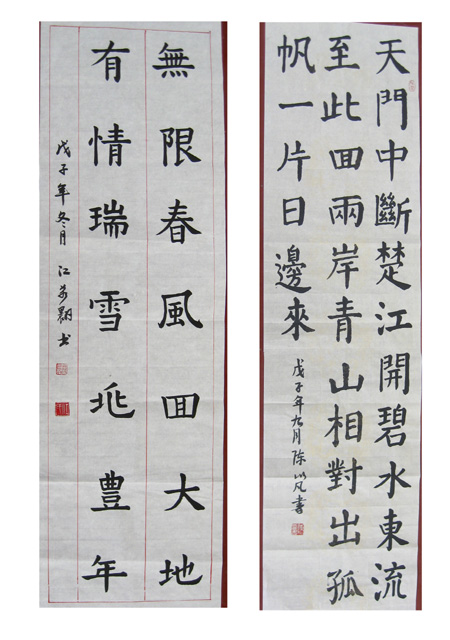 天門中斷楚江開碧水東流
至此囬兩岸青山相對出孤
帆一片日邊來
戊子年九月陈以凡書
無限春風囬大地
有情瑞雪兆豊年
戊子年冬月 江书